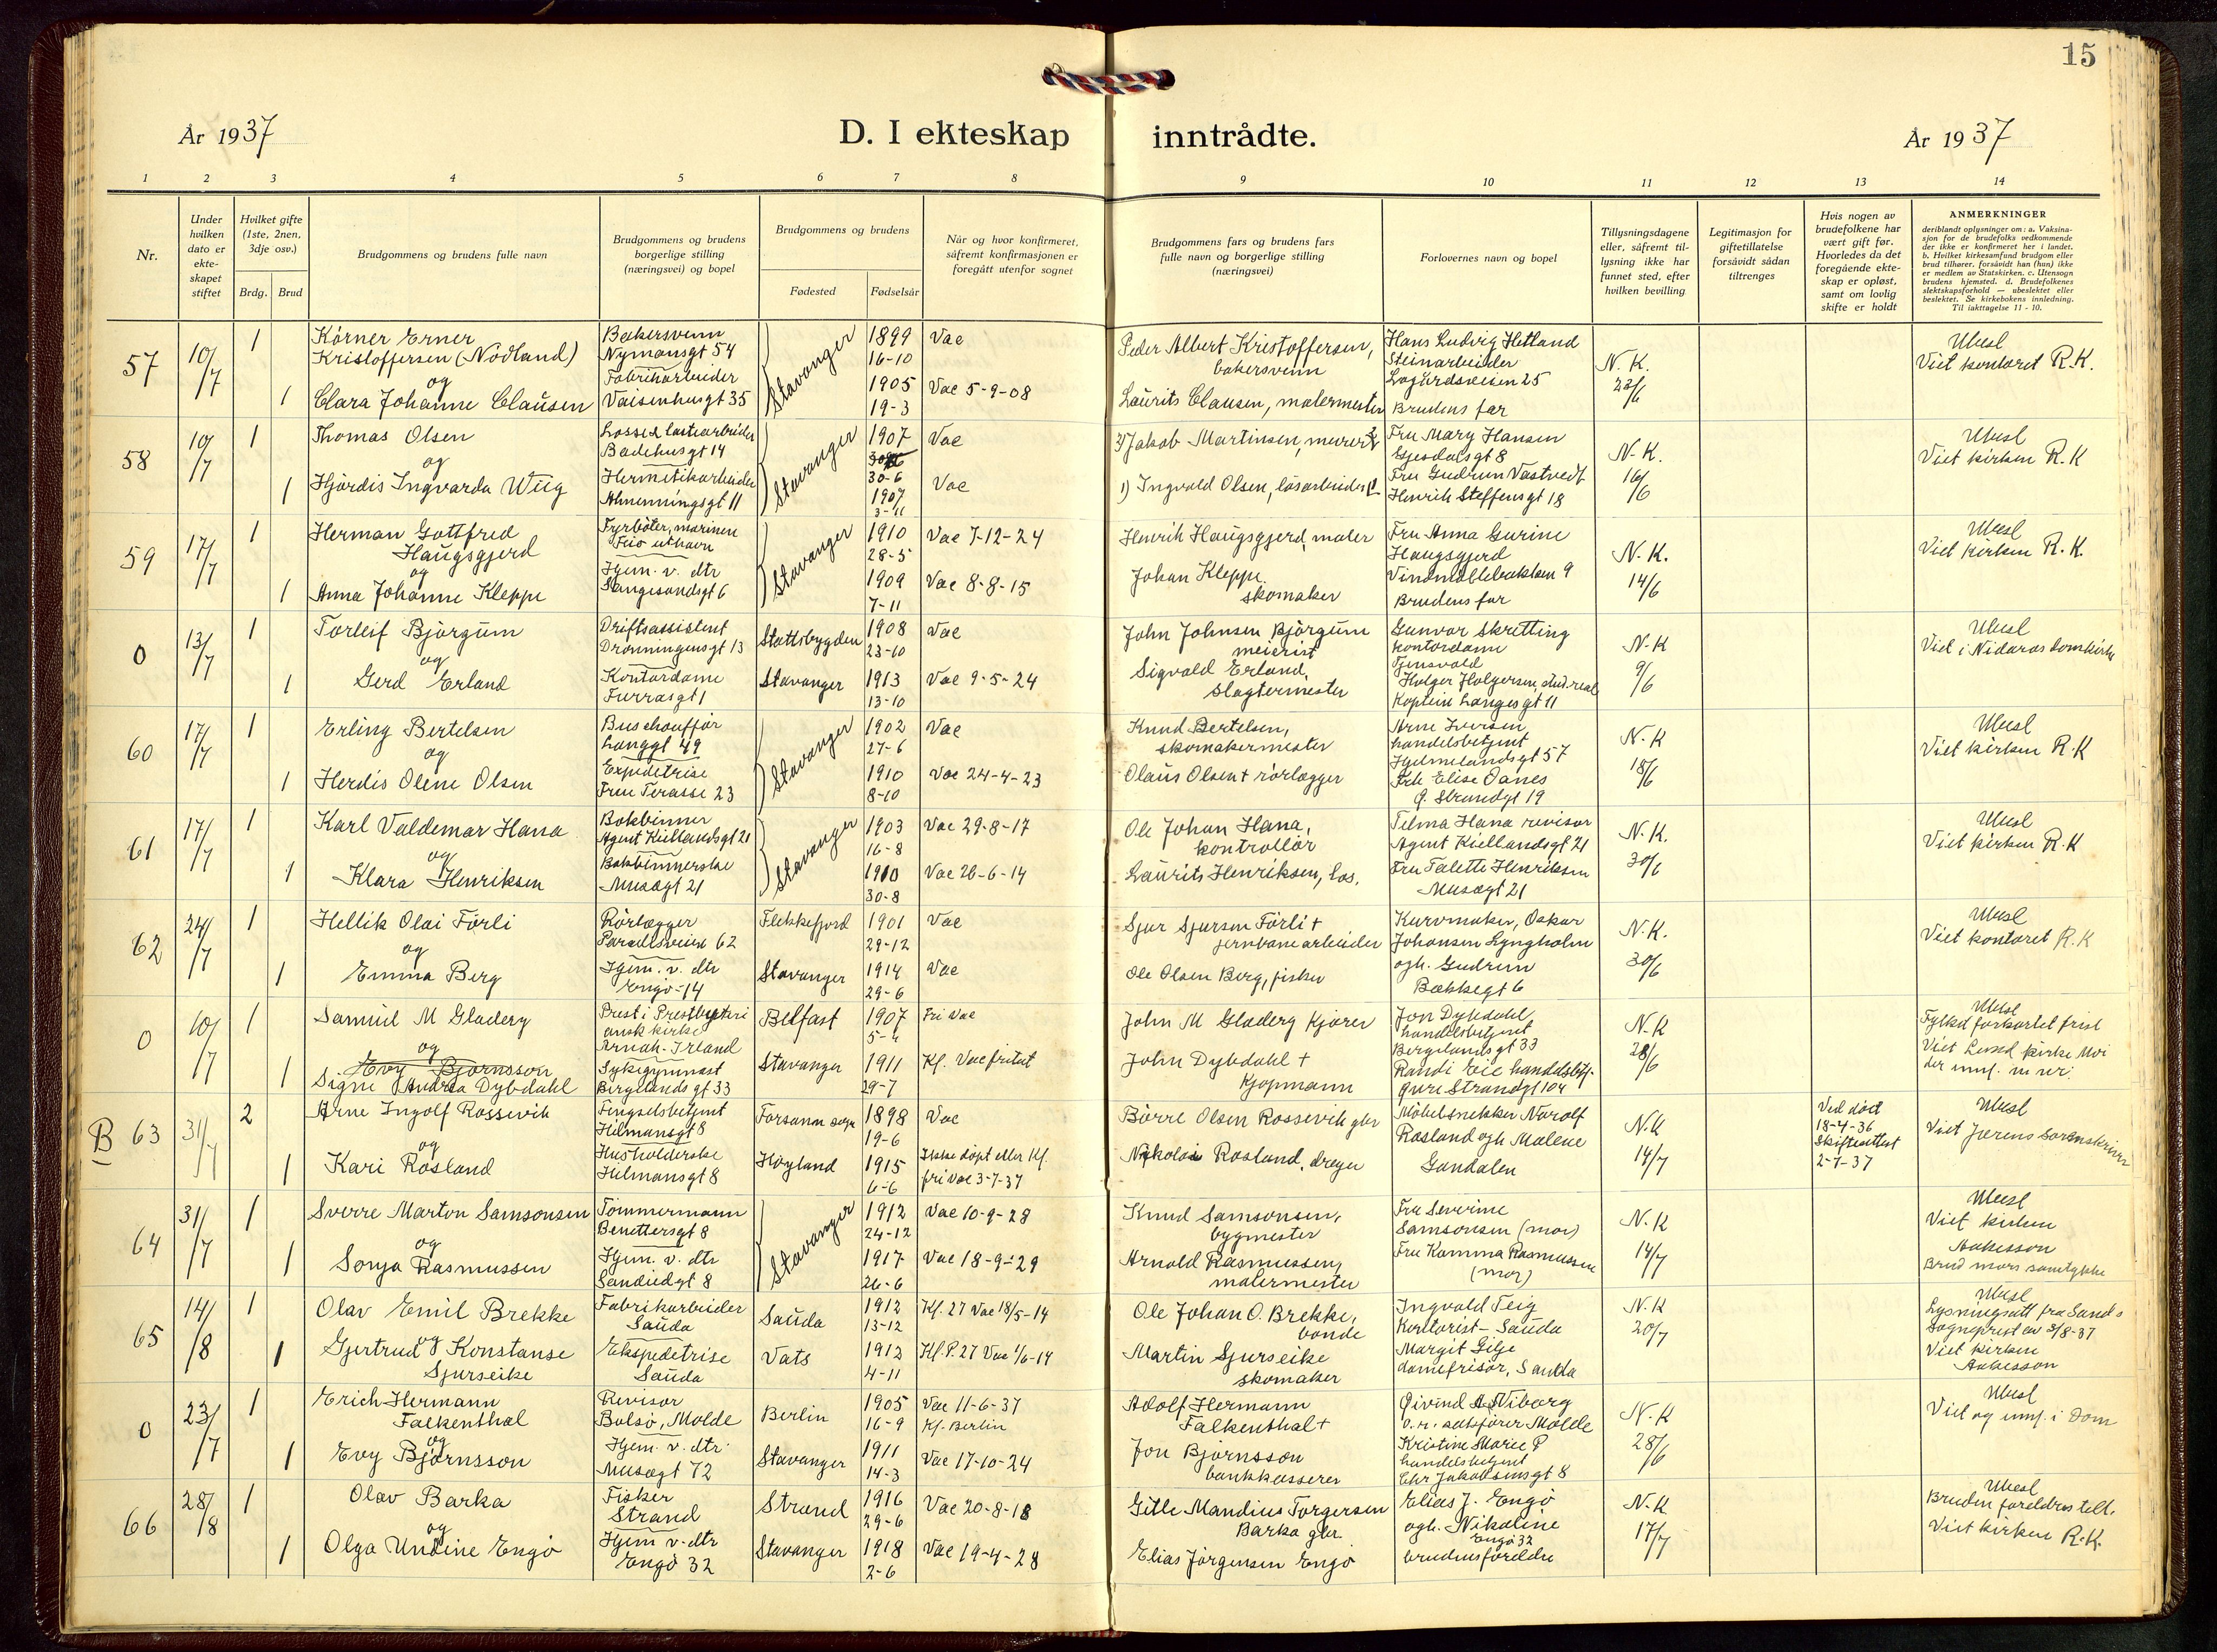 15
År 1937
D. I ekteskap inntrådte.
År 1937
1 2 3 4 5 6 7 8 9 10 11 12 13 14
Nr.
Under hvilken dato er ekte- skapet stiftet
Hvilket gifte (1ste, 2nen, 3dje osv.)
Brdg. Brud
Brudgommens og brudens fulle navn
Brudgommens og brudens borgerlige stilling (næringsvei) og bopel
Brudgommens og brudens
Fødested Fødselsår
Når og hvor konfirmeret, såfremt konfirmasjonen er foregått utenfor sognet
Brudgommens fars og brudens fars fulle navn og borgerlige stilling (næringsvei)
Forlovernes navn og bopel
Tillysningsdagene eller, såfremt til- lysning ikke har funnet sted, efter hvilken bevilling
Legitimasjon for giftetillatelse forsåvidt sådan tiltrenges
Hvis nogen av brudefolkene har vært gift før. Hvorledes da det foregående ekte- skap er opløst, samt om lovlig skifte er holdt
ANMERKNINGER
deriblandt oplysninger om: a. Vaksina- sjon for de brudefolks vedkommende der ikke er konfirmeret her i landet. b. Hvilket kirkesamfund brudgom eller brud tilhører, forsåvidt han (hun) ikke er medlem av Statskirken. c. Utensogn brudens hjemsted. d. Brudefolkenes slektskapsforhold — ubeslektet eller beslektet. Se kirkebokens innledning. Til iakttagelse 11 - 10.
57 10/7 1 Körner Erner Kristoffersen (Nodland)
Bakersvenn Nymansgt 54
Stavanger 1899 16-10 Vac
Peder Albert Kristoffersen, bakersvenn
Hans Ludvig Hetland Steinarbeider Lagårdsveien 25
N.K. 22/6
Ubesl Viet kontoret R.K.
og
1 Clara Johanne Clausen
Fabrikarbeider Vaisenhusgt 35
1905 19-3 Vac 5-9-08
Laurits Clausen, malermester
Brudens far
58 10/7 1 Thomas Olsen
Losse & lastearbeider Badehusgt 14
Stavanger 1907 30-6 Vac
2) Jakob Martinsen, murer
Fru Mary Hansen Gjesdalsgt 8
N.K. 16/6
Ubesl Viet kirken R.K
og
1 Hjördis Ingvarda Wiig
Hermetikarbeider
1907 3-11 Vac
1) Ingvald Olsen, løsarbeider
Fru Gudrun Vastvedt Henrik Steffensgt 18
59 17/7 1 Herman Gottfred Haugsgjerd
Fyrbøter, marinen
Stavanger 1910 28-5 Vac 7-12-24
Henrik Haugsgjerd, maler
Fru Anna Gurine Haugsgjerd Vindmøllebakken 9
N.K. 14/6
Ubesl Viet kirken R.K.
og
1 Anna Johanne Kleppe
Hjem. v. dtr Langesundsgt 6
1909 7-11 Vac 8-8-15
Johan Kleppe. skomaker
Brudens far
0 13/7 1 Torleif Björgum
Driftsassistent Dronningensgt 13
Stattsbygden 1908 23-10 Vac
John Johnsen Björgum meierist
Gunvor Skretting kontordame Tjensvold
N.K 9/6
Ubesl Viet i Nidaros domkirke
og
1 Gerd Erland
Kontordame Furrasgt 1
Stavanger 1913 13-10 Vac 9-5-24
Sigvald Erland, slagtermester
Holger Holgersen, stud.real Kaptein Langesgt 11
60 17/7 1 Erling Bertelsen
Buschauffør Langgt 49
Stavanger 1902 27-6 Vac
Knud Bertelsen, skomakermester
Arne Iversen handelsbetjent Hjelmelandsgt 57
N.K 18/6
Ubesl Viet kirken R.K
og
1 Herdis Olene Olsen
Expeditrise Frue Terasse 23
1910 8-10 Vac 24-4-23
Olaus Olsen + rørlægger
Frk Elise Oanes Ø. Strandgt 19
61 17/7 1 Karl Valdemar Hana
Bokbinner Agent Kiellandsgt 21
Stavanger 1903 16-8 Vac 29-8-17
Ole Johan Hana, kontrollør
Telma Hana revisor Agent Kiellandsgt 21
N.K. 30/6
Ubesl Viet kirken R.K
og
1 Klara Henriksen
Bokbinnerske Musægt 21
1910 30-8 Vac 26-6-14
Laurits Henriksen, los.
Fru Talette Henriksen Musægt 21
62 24/7 1 Hellik Olai Förli
Rørlægger Parallelsveien 62
Flekkefjord 1901 29-12 Vac
Sjur Sjursen Förli + jernbanearbeider
Kurvmaker, Oskar Johansen Lyngholm
N.K. 30/6
Ubesl Viet kontoret R.K
og
1 Emma Berg
Hjem. v. dtr Engø-14
Stavanger 1914 29-6 Vac
Ole Olsen Berg, fisker
ogh. Gudrun Bækkegt 6
0 10/7 1 Samuel M Gladery
Prest i Presbyteri ansk kirke Armah-Irland
Belfast 1907 5-4 Fri Vac
John M Gladery Kjører
Jon Dybdahl, handelsbetjent Bergelandsgt 33
N.K 28/6
Ubesl Fylket forkortet frist
og
Evy Bjornsson
1 Signe Andrea Dybdahl
Sykegymnast Bergelandsgt 33
Stavanger 1911 29-7 Kf. Vac fritat
John Dybdahl + Kjøpmann
Randi Eie handelsbtj. Øvre Strandgt 104
B 63 31/7 2 Arne Ingolf Rossevik
Fengselsbetjent Hilmansgt 8
Forsann sogn 1898 19-6 Vac
Börre Olsen Rossevik gbr
Møbelsnekker Narolf
N.K 14/7
Ved død 18-4-36 Skifteattest 2-7-37
Ubesl Viet Jærens sorenskriver
og
1 Kari Rosland
Husholderske Hilmansgt 8
Høyland 1915 6-6 Ikke døpt eller Kf. fri vac 3-7-37
Nikolai Rosland, dreyer
Rosland ogh Malene Gandalen
64 31/7 1 Sverre Marton Samsonsen
Tømmermann Benettersgt 8
Stavanger 1912 24-12 Vac 10-9-28
Knud Samsonsen, bygmester
Fru Severine Samsonsen (mor)
N.K 14/7
Ubesl Viet kirken Aakesson
og
1 Sonja Rasmussen
Hjem. v. dtr Sandeidgt 8
1917 26-6 Vac 18-9-29
Arnold Rasmussen, malermester
Fru Kamma Rasmussen (mor)
Brud mors samtykke
65 14/8 1 Olav Emil Brekke
Fabrikarbeider Sauda
Sauda 1912 13-12 Kf. 27 Vac 18/5-14
Ole Johan O. Brekke, bonde
Ingvald Teig Kontorist - Sauda
N.K 20/7
Ubesl Lysningsatt fra Sands sogneprest av 3/8-37 Viet kirken Aakesson
og
1 Gjertrud Konstanse Sjurseike
Ekspeditrise Sauda
Vats 1912 4-11 Kf. P. 27 Vac 1/6-14
Martin Sjurseike skomaker
Margit Gilje damefrisør, Sauda
0 23/7 1 Erich Hermann Falkenthal
Revisor Bolsø, Molde
Berlin 1905 16-9 Vac 11-6-37 Kf. Berlin
Adolf Hermann Falkenthal +
Øivind A Wiborg o.r. sakfører Molde
N.K 28/6
Ubesl Viet og innf. i Dom
og
1 Evy Björnsson
Hjem. v. dtr. Musægt 72
Stavanger 1911 14-3 Vac 17-10-24
Jon Björnsson bankkasserer
Kristine Marie P handelsbetjent Chr Jakobsensgt 8
66 28/8 1 Olav Barka
Fisker Strand
Strand 1916 29-6 Vac 20-8-18
Gitle Mandius Torgersen Barka gbr
Elias J. Engø
N.K 17/7
Ubesl Bruden foreldres till. Viet kirken R.K.
og
1 Olga Undine Engø
Hjem v. dtr Engø 32
Stavanger 1918 2-6 Vac 19-4-28
Elias Jørgensen Engø
ogh. Nikoline Engø 32 brudens foreldre